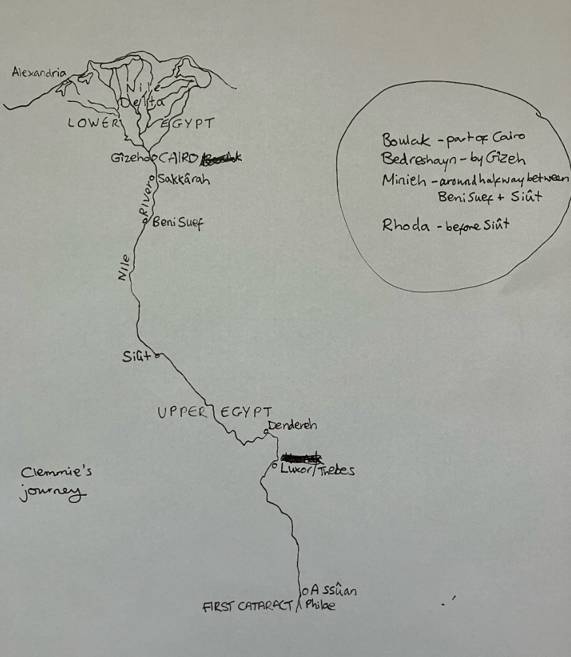 Alexandria
Nile
Delta
LOWER EGYPT
Gizeh CAIRO
Sakkârah
River
Beni Suef
Nile
Siût
UPPER EGYPT
Dendereh
Luxor/Thebes
Assûan
FIRST CATARACT Philae
Clemmie's
journey
Boulak - part of Cairo
Bedreshayn - by Gizeh
Minieh - around halfway between
Beni Suef + Siût
Rhoda - before Siût